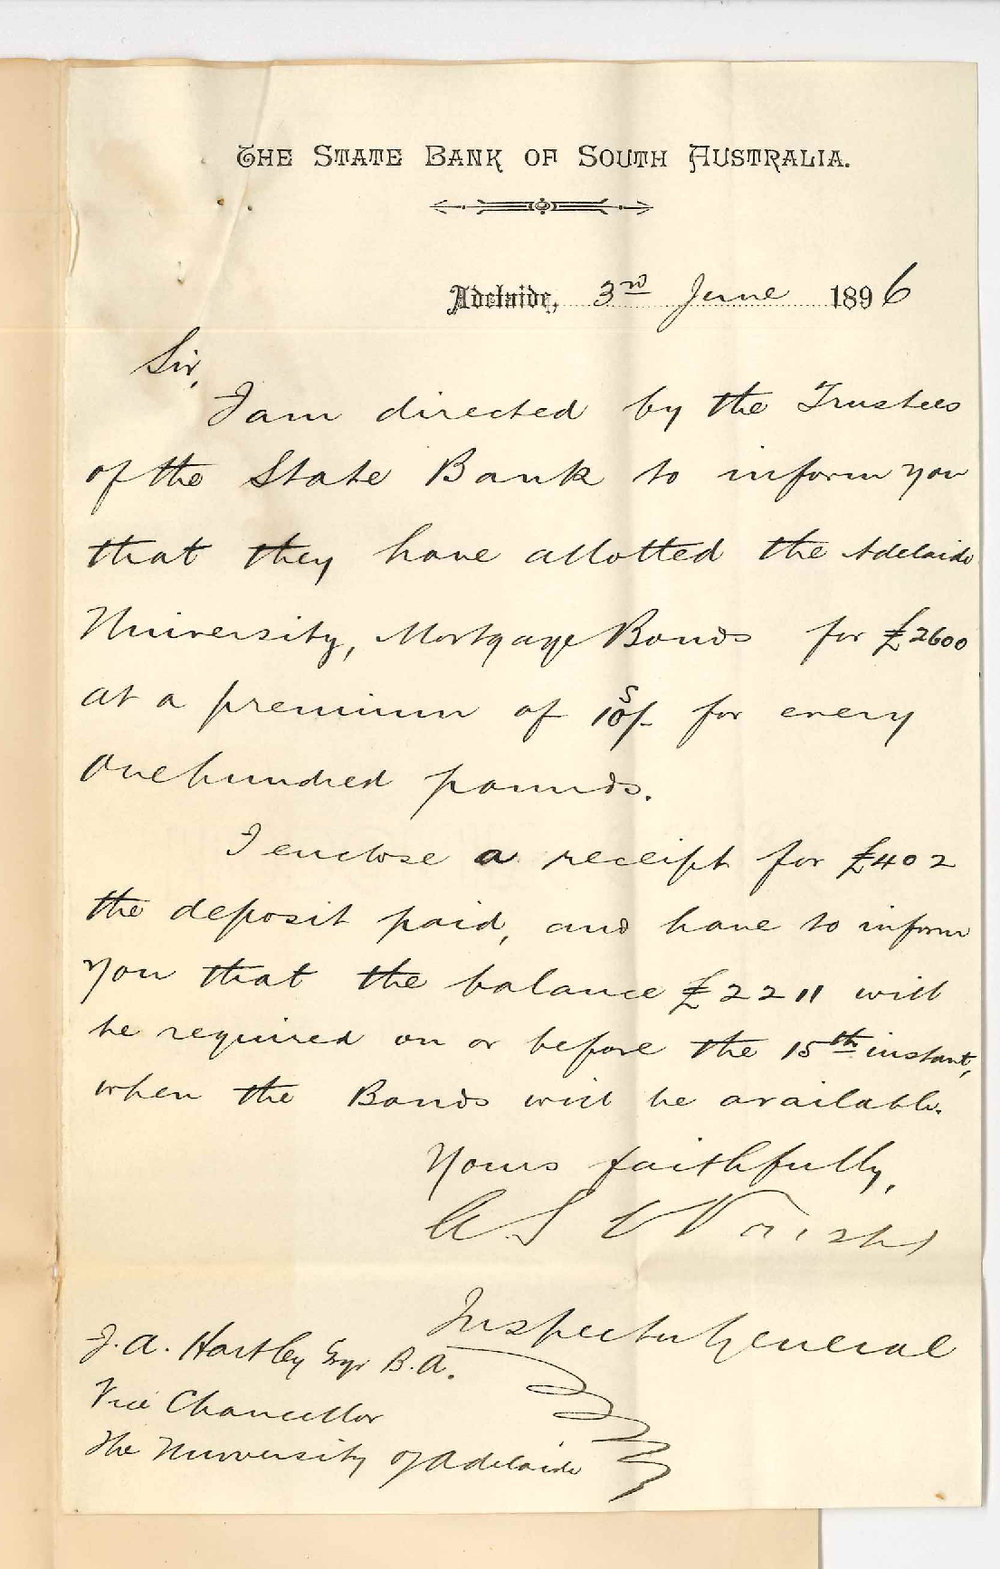 THE STATE BANK OF SOUTH AUSTRALIA.
Adelaide, 3rd June 1896
Sir,
I am directed by the Trustees
of the State Bank to inform you
that they have allotted the Adelaide
University, Mortgage Bonds for £2600
at a premium of 10s/- for every
One hundred pounds.
I enclose a receipt for £402
the deposit paid, and have to inform
you that the balance £2211 will
be required on or before the 15th instant,
when the Bonds will be available.
Yours faithfully,
G. S. Wright
Inspector General
J. A. Hartley Esqr B.A.
Vice Chancellor
The University of Adelaide